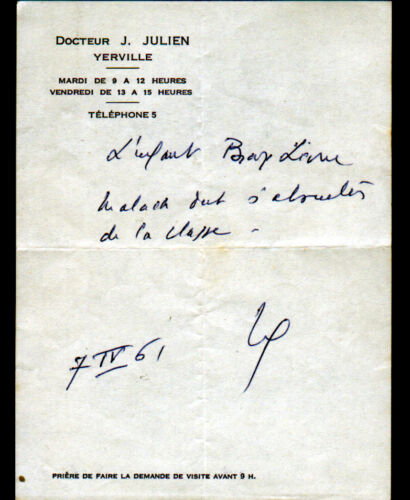 DOCTEUR J. JULIEN
YERVILLE
MARDI DE 9 A 12 HEURES
VENDREDI DE 13 A 15 HEURES
TÉLÉPHONE 5
L'enfant Bray
malade doit s'absenter
de la classe -
7 IV 61
PRIÈRE DE FAIRE LA DEMANDE DE VISITE AVANT 9 H.